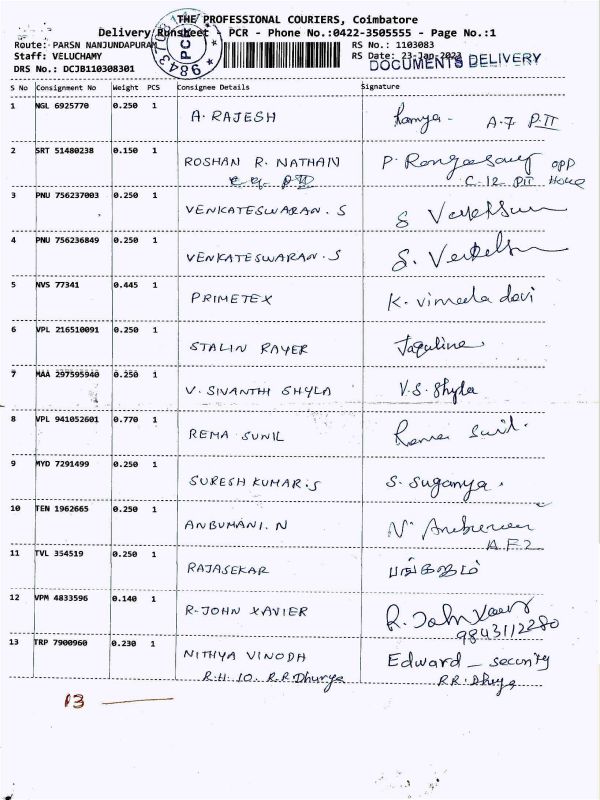 THE PROFESSIONAL COURIERS, Coimbatore
Delivery Runsheet - PCR - Phone No.:0422-3505555 - Page No.:1
Route: PARSN NANJUNDAPURAM RS No.: 1103083
Staff: VELUCHAMY RS Date: 23-Jan-2023
DOCUMENTS DELIVERY
DRS No.: DCJB110308301
PCR
984370
S No Consignment No Weight PCS Consignee Details Signature
1 NGL 6925770 0.250 1 A. RAJESH Ramya - A.7 P.II
2 SRT 51480238 0.150 1 ROSHAN R. NATHAN P. Rangasamy opp
C.12 PII House
3 PNU 756237003 0.250 1 VENKATESWARAN. S
4 PNU 756236849 0.250 1 VENKATESWARAN. S
5 NVS 77341 0.445 1 PRIMETEX K. vimala devi
6 VPL 216510091 0.250 1 STALIN RAYER Jaquline
7 MAA 297595940 0.250 1 V. SIVANTHI SHYLA V.S. Shyla
8 VPL 941052601 0.770 1 REMA SUNIL
9 MYD 7291499 0.250 1 SURESH KUMAR.S S. Suganya.
10 TEN 1962665 0.250 1 ANBUMANI. N
A.F2
11 TVL 354519 0.250 1 RAJASEKAR பங்கஜம்
12 VPM 4833596 0.140 1 R. JOHN XAVIER R. John Xavier
9843112280
13 TRP 7900960 0.230 1 NITHYA VINODH Edward - security
R.H. 10. R.R Dhurya R.R. Dhurya
13 —